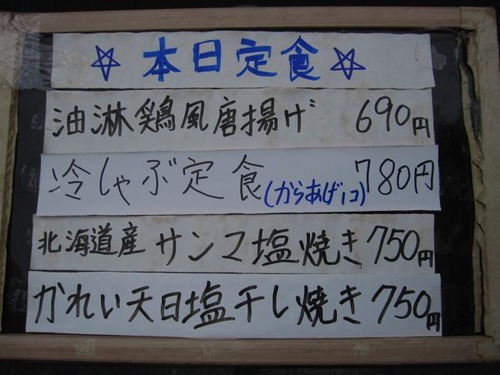 ☆ 本日定食 ☆
油淋鶏風唐揚げ 690円
冷しゃぶ定食(からあげ1コ) 780円
北海道産 サンマ塩焼き 750円
かれい天日塩干し焼き 750円